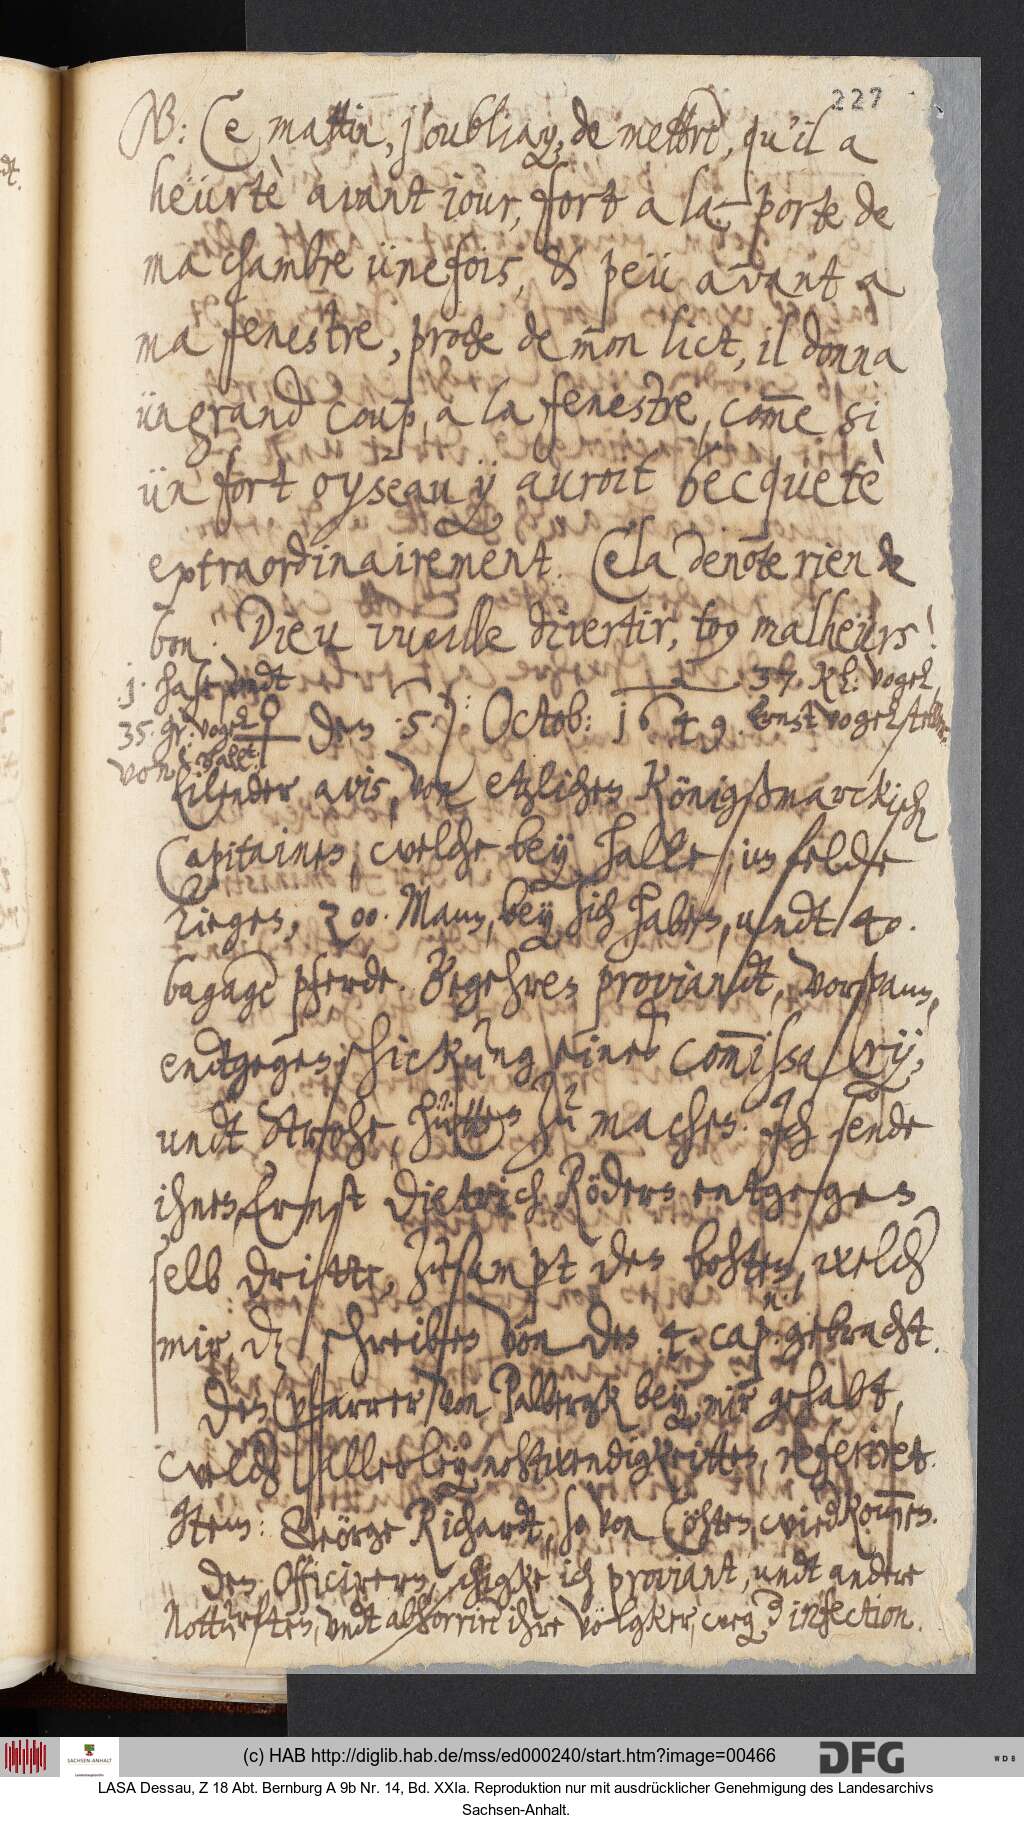 227
NB: Ce mattin, j'oubliay, de mettre, qu'il a
heürtè avant jour, fort a la porte de
ma chambre ünefois, & peü avant a
ma fenestre, proche de mon lict, il donna
ün grand coup, a la fenestre, com̅e si
ün fort oyseau ÿ auroit becquetè
extraordinairement. Cela denote rien de
bon. Dieu vueille divertir, tou malheürs!
1. hase undt
35. gr: vogel
von Ball:
37. Kl: vogel,
Ernst vogelsteller.
♀ den 5. Octob: 1649.
Eilender avis, von etzlichen Königßmarckisch
Capitainen, welche beÿ Halle, im felde
liegen, 300. Mann, beÿ sich haben, undt 40.
bagage pferde. Begehren proviandt, Vorspann,
endtgegen schickung eines Com̅issarÿ,
undt Strohe, Hütten zu machen. Ich sende
ihnen, Ernst Dietrich Röders entgegen
selb dritte, zusampt den bohten, welch
mir, die schreiben von den 4. cap: gebracht.
Den Pfarrer von Palbergk beÿ mir gehabt,
welch allerleÿ nohtwendigkeitten, referiret.
Item: Geörge Richardt, so von Cöhten, wied kom̅en.
Den Officirern, schigke ich proviant, undt andere
Notturften, undt abhorrire ihre Völgker, weg d infection.
(c) HAB http://diglib.hab.de/mss/ed000240/start.htm?image=00466
SACHSEN-ANHALT
Landesarchiv
DFG
WDB
LASA Dessau, Z 18 Abt. Bernburg A 9b Nr. 14, Bd. XXIa. Reproduktion nur mit ausdrücklicher Genehmigung des Landesarchivs
Sachsen-Anhalt.